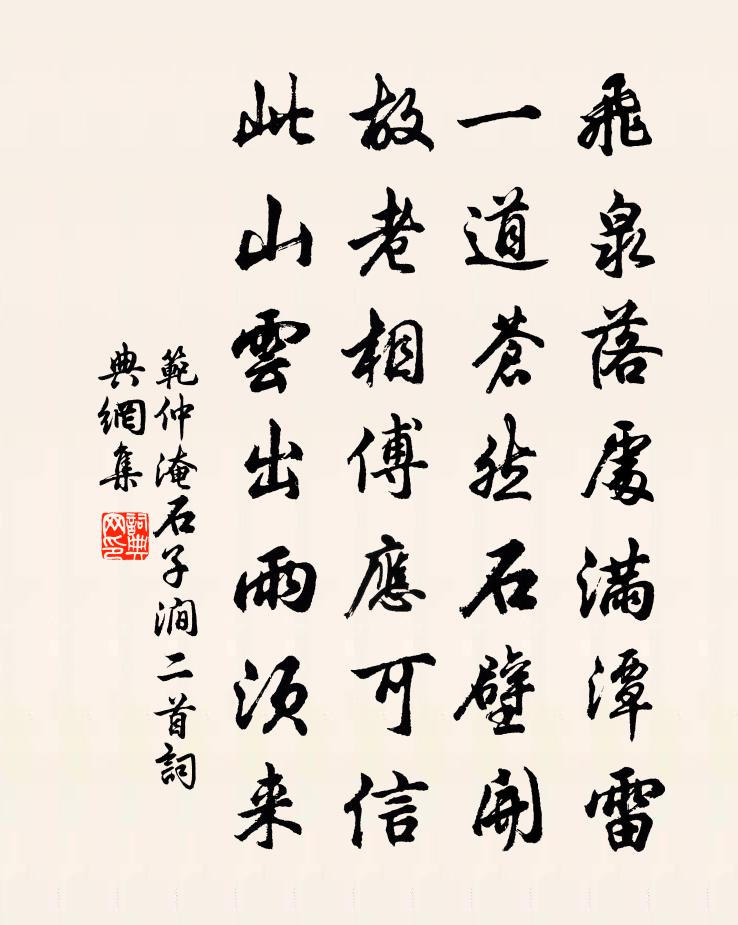 飛泉落處滿潭雷
一道蒼然石壁開
故老相傳應可信
此山雲出雨須来
範仲淹石子澗二首詞
典網集
詞典網印